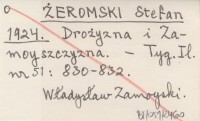 ŻEROMSKI Stefan
1924. Drożyzna i Za-
moyszczyzna. - Tyg. Il.
nr 51: 830-832.
Władysław Zamoyski.